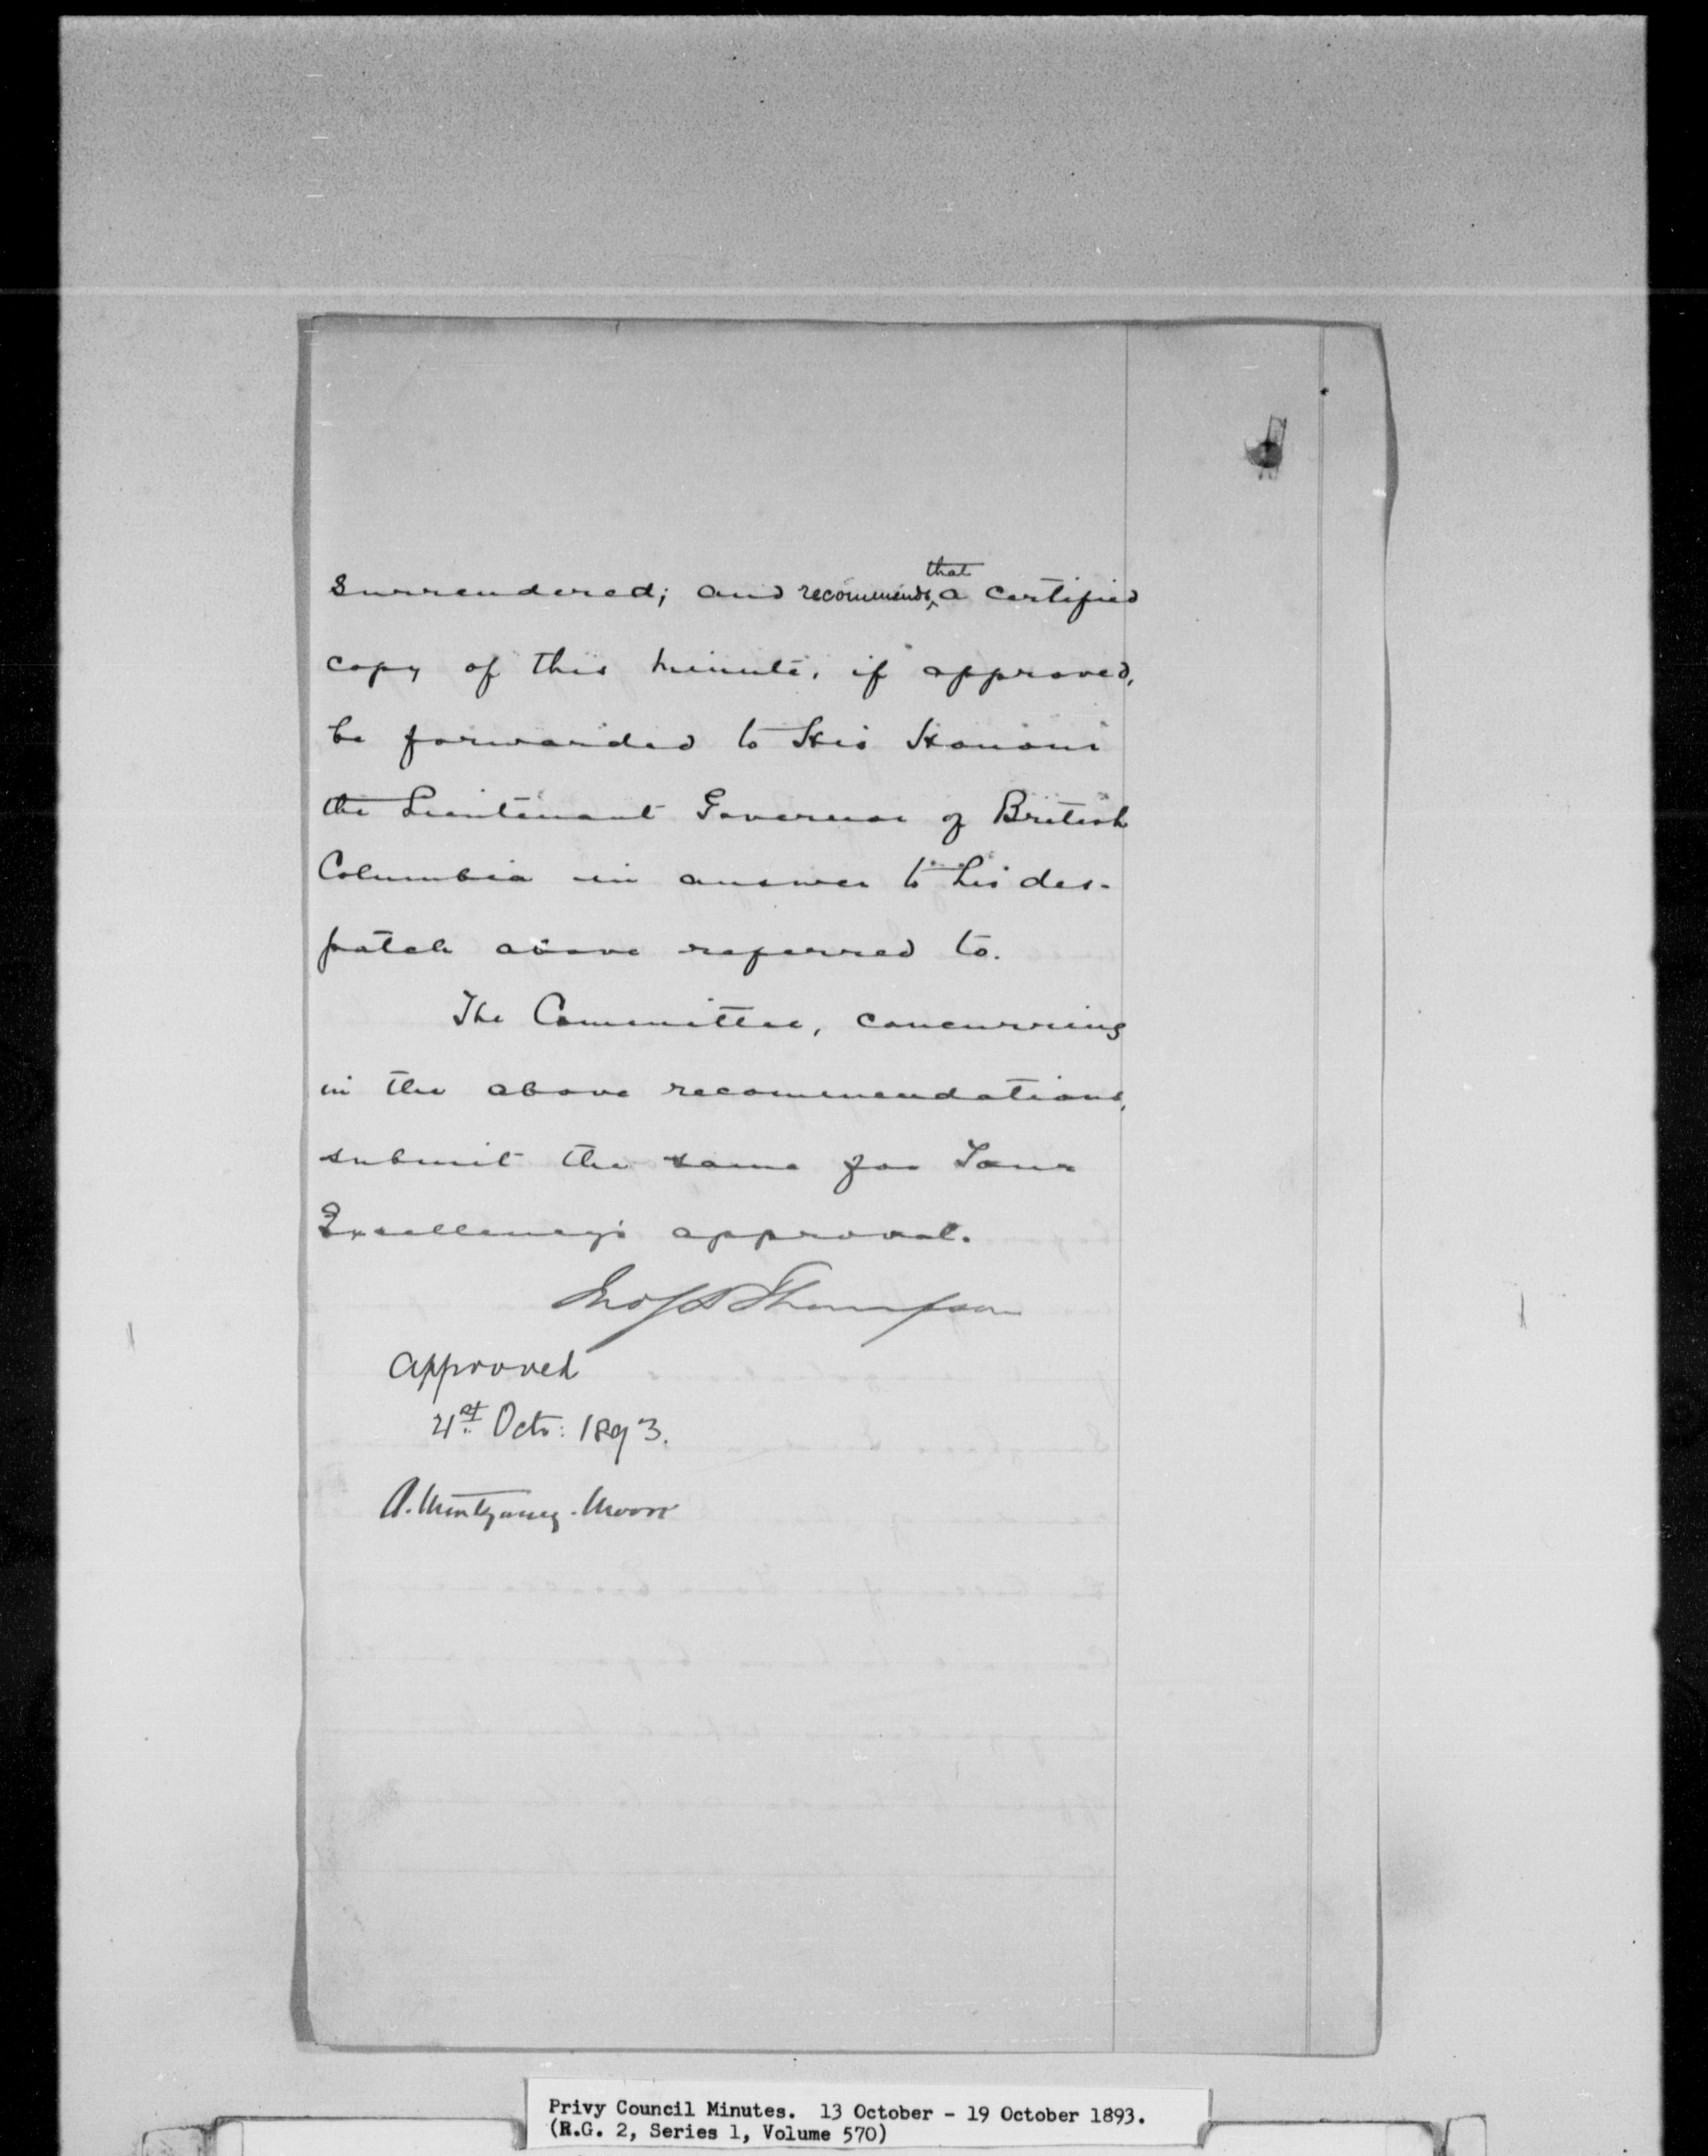 that
surrendered; and recommends a certified
copy of this minute, if approved,
be forwarded to His Honour
the Lieutenant Governor of British
Columbia in answer to his des-
patch above referred to.
The Committee, concurring
in the above recommendations,
submit the same for Your
Excellency's approval.
Jno S D Thompson
Approved
21st Octr: 1893.
A. Montgomery. Moore
Privy Council Minutes. 13 October - 19 October 1893.
(R.G. 2, Series 1, Volume 570)